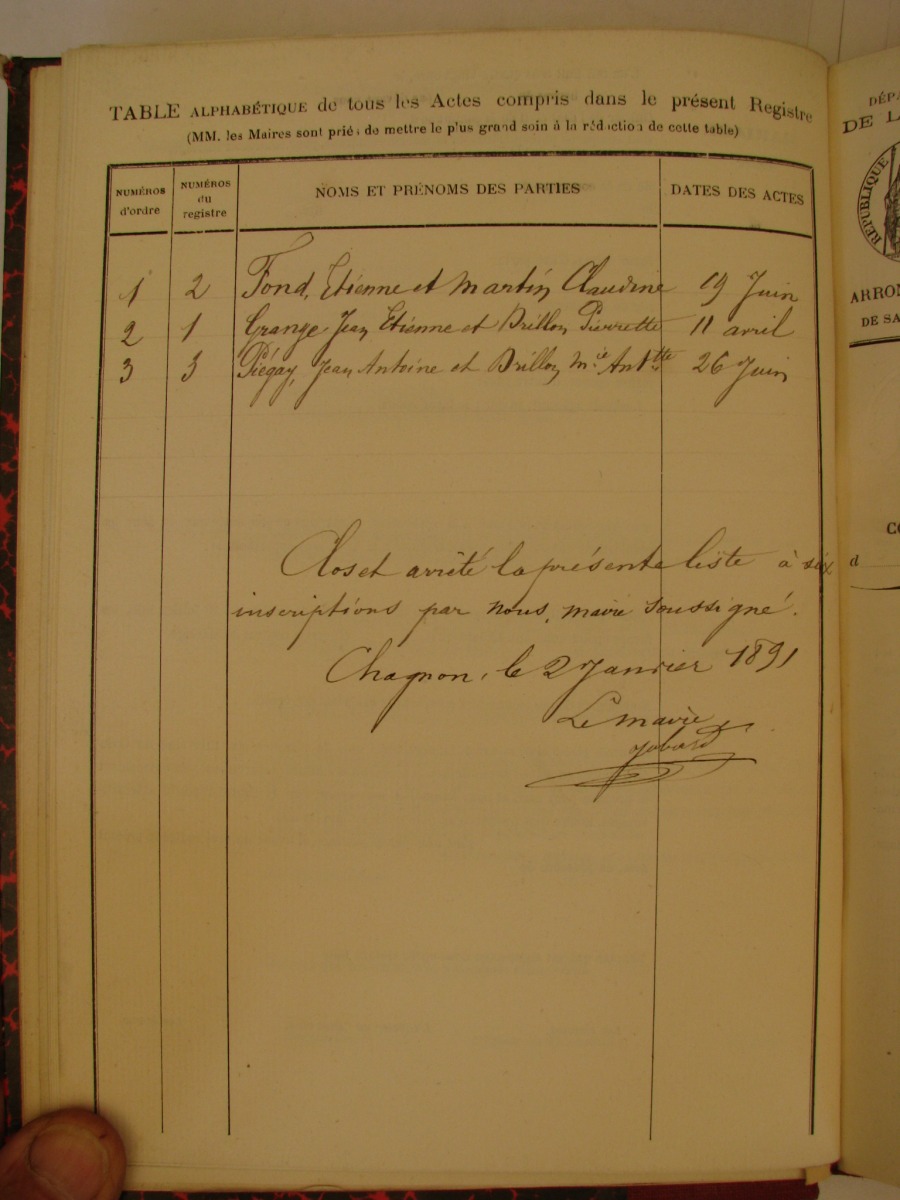 TABLE ALPHABÉTIQUE de tous les Actes compris dans le présent Registre
(MM. les Maires sont priés de mettre le plus grand soin à la rédaction de cette table)
NUMÉROS d'ordre NUMÉROS du registre NOMS ET PRÉNOMS DES PARTIES DATES DES ACTES
1 2 Fond, Etienne et Martin Claudine 19 Juin
2 1 Grange Jean Etienne et Brillon Pierrette 11 avril
3 3 Piégay, Jean Antoine et Brillon Mie Antte 26 Juin
Clos et arrêté la présente liste à six
inscriptions par nous, maire soussigné.
Chagnon, le 2 Janvier 1891
Le maire
DÉPA
DE L
RÉPUBLIQUE
ARRON
DE SA
CO
d